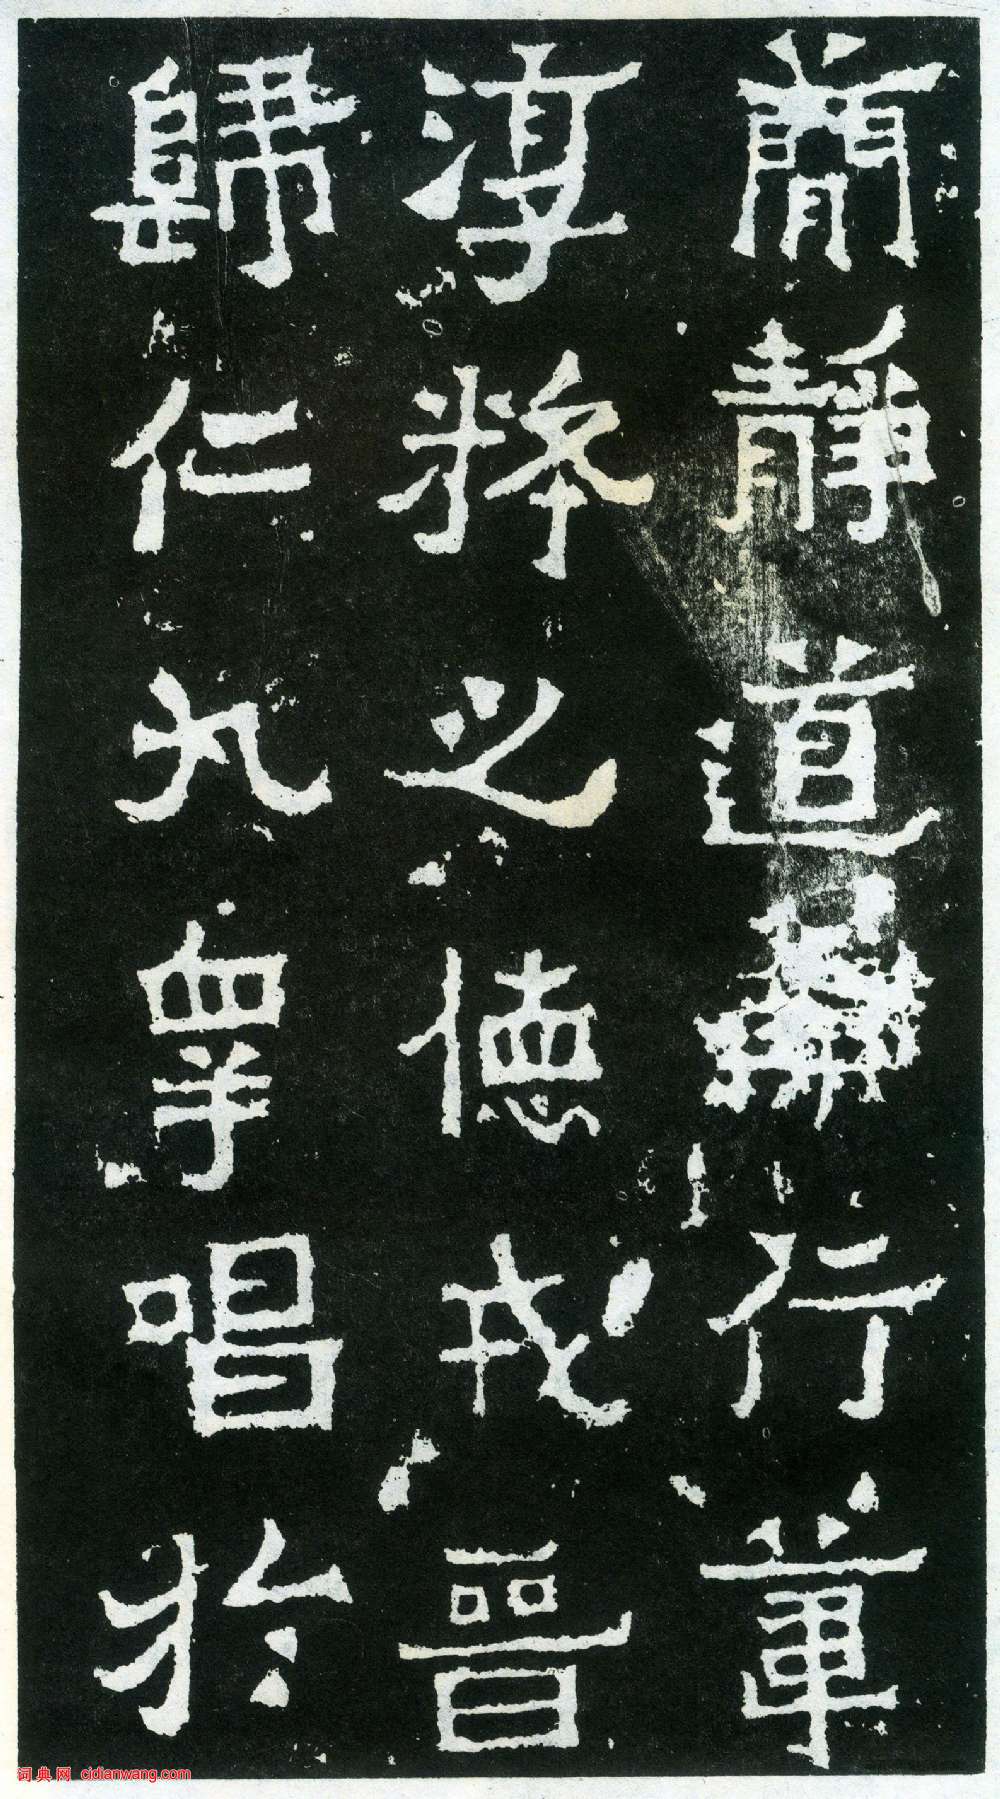 簡靜道兼行葦
淳粹之德戎晉
歸仁九皋唱於
词典网 cidianwang.com